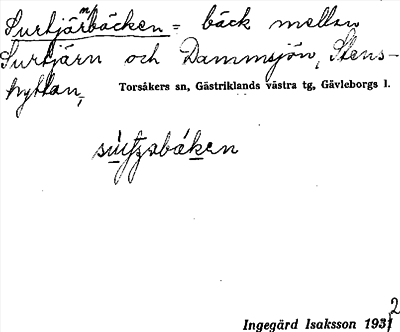 Surtjärnbäcken = bäck mellan
Surtjärn och Dammsjön, Stens-
hyttan,
Torsåkers sn, Gästriklands västra tg, Gävleborgs l.
Ingegärd Isaksson 1932